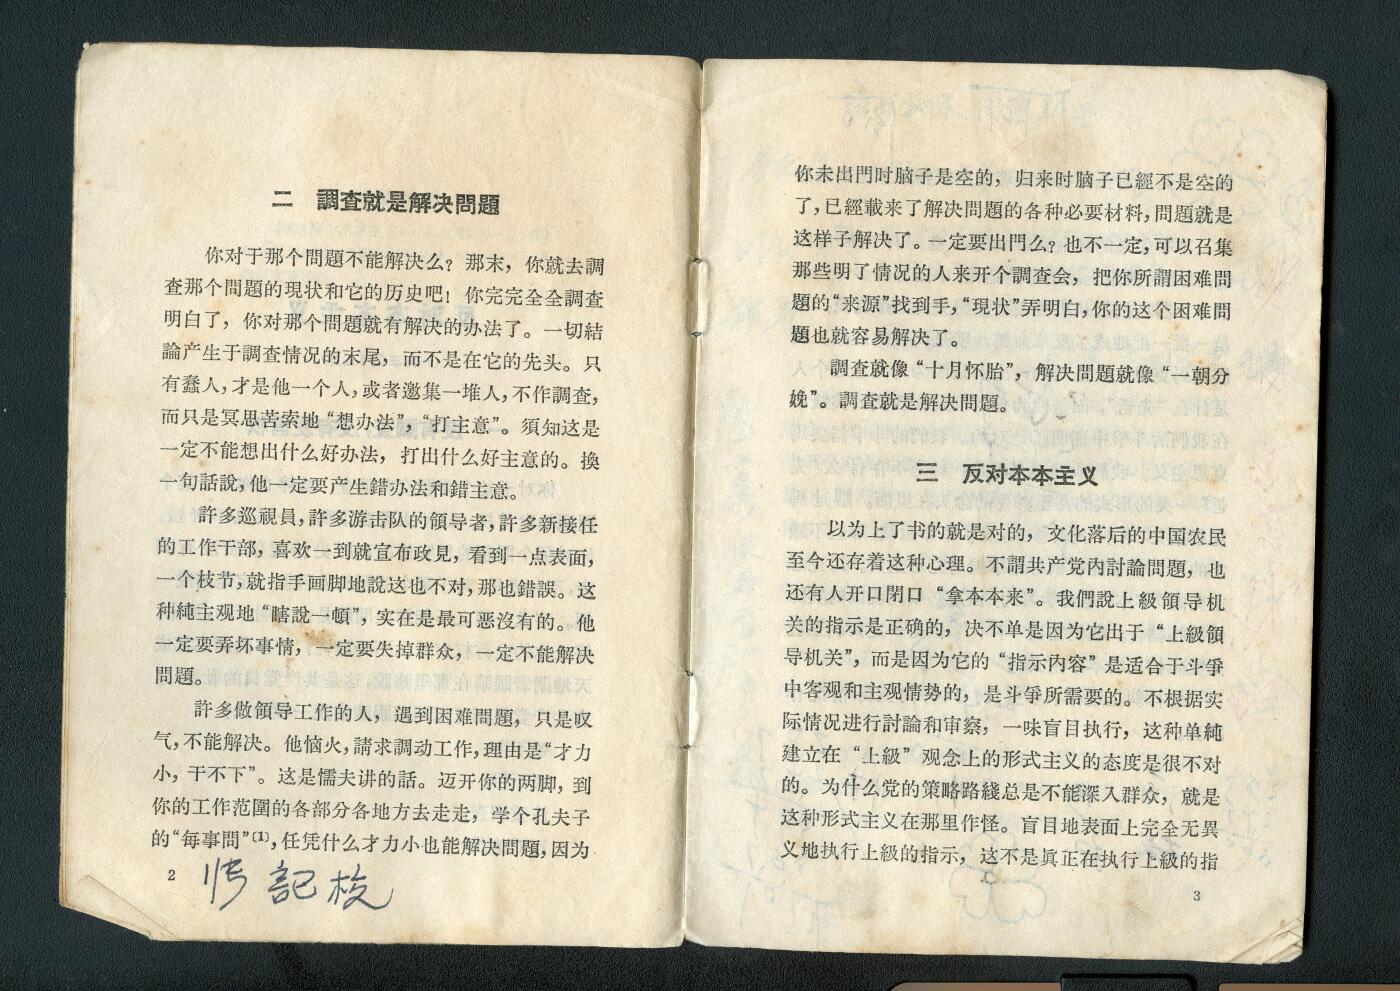 二　調查就是解决問題
你对于那个問題不能解决么？那末，你就去調
查那个問題的現状和它的历史吧！你完完全全調查
明白了，你对那个問題就有解决的办法了。一切結
論产生于調查情况的末尾，而不是在它的先头。只
有蠢人，才是他一个人，或者邀集一堆人，不作調查，
而只是冥思苦索地“想办法”，“打主意”。須知这是
一定不能想出什么好办法，打出什么好主意的。換
一句話說，他一定要产生錯办法和錯主意。
許多巡視員，許多游击队的領导者，許多新接任
的工作干部，喜欢一到就宣布政見，看到一点表面，
一个枝节，就指手画脚地說这也不对，那也錯誤。这
种純主观地“瞎說一頓”，实在是最可恶沒有的。他
一定要弄坏事情，一定要失掉群众，一定不能解决
問題。
許多做領导工作的人，遇到困难問題，只是叹
气，不能解决。他恼火，請求調动工作，理由是“才力
小，干不下”。这是懦夫讲的話。迈开你的两脚，到
你的工作范圍的各部分各地方去走走，学个孔夫子
的“每事問”〔1〕，任凭什么才力小也能解决問題，因为
2
記校
你未出門时脑子是空的，归来时脑子已經不是空的
了，已經載来了解决問題的各种必要材料，問題就是
这样子解决了。一定要出門么？也不一定，可以召集
那些明了情况的人来开个調查会，把你所謂困难問
題的“来源”找到手，“現状”弄明白，你的这个困难問
題也就容易解决了。
調查就像“十月怀胎”，解决問題就像“一朝分
娩”。調查就是解决問題。
三　反对本本主义
以为上了书的就是对的，文化落后的中国农民
至今还存着这种心理。不謂共产党內討論問題，也
还有人开口閉口“拿本本来”。我們說上級領导机
关的指示是正确的，决不单是因为它出于“上級領
导机关”，而是因为它的“指示內容”是适合于斗爭
中客观和主观情势的，是斗爭所需要的。不根据实
际情况进行討論和审察，一味盲目执行，这种单純
建立在“上級”观念上的形式主义的态度是很不对
的。为什么党的策略路綫总是不能深入群众，就是
这种形式主义在那里作怪。盲目地表面上完全无異
义地执行上級的指示，这不是眞正在执行上級的指
3